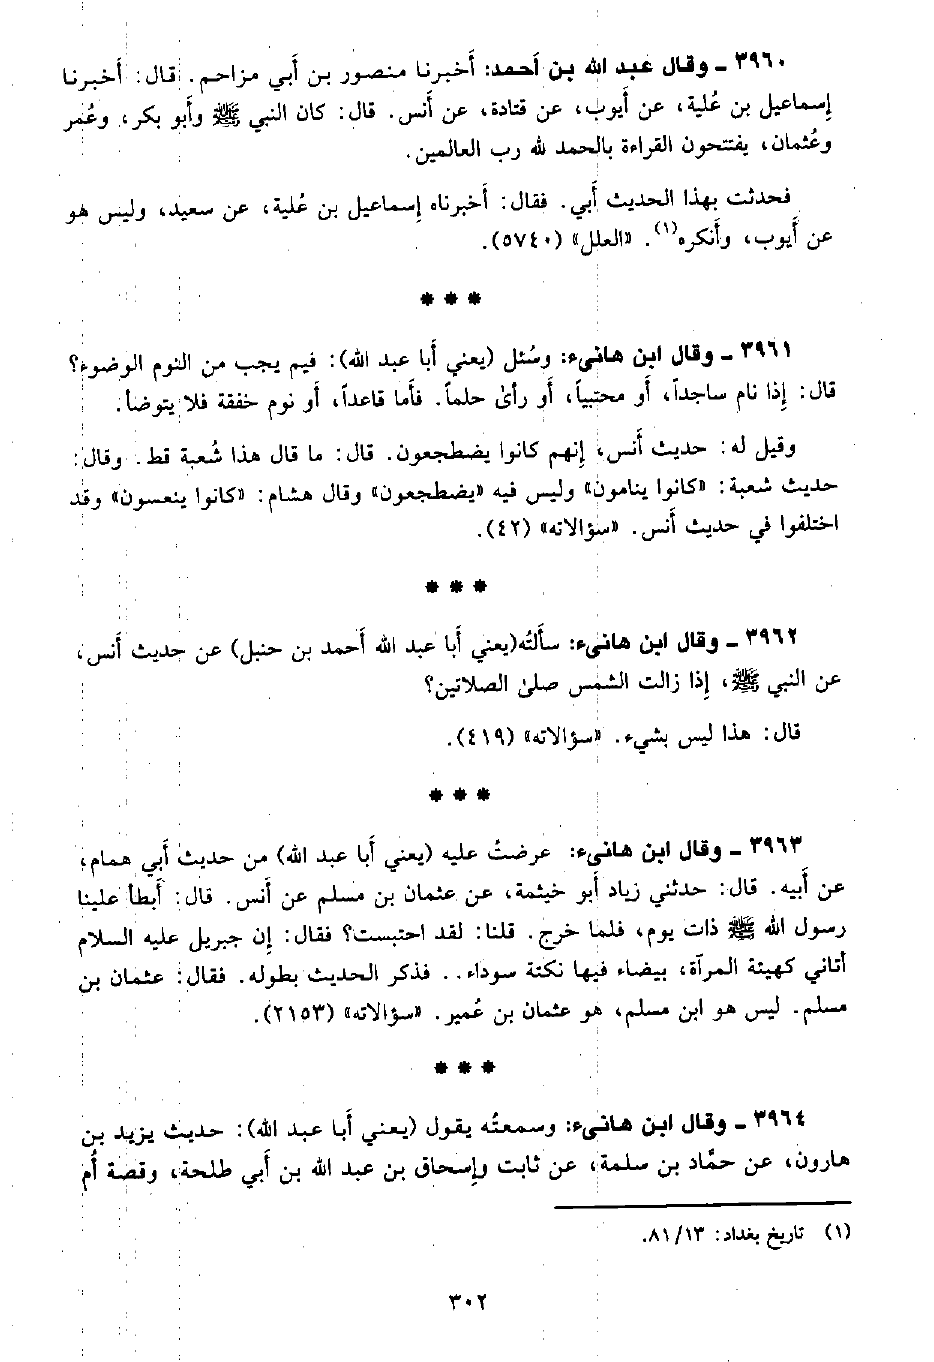 ٣٩٦٠ ـ وقال عبد الله بن أحمد: أخبرنا منصور بن أبي مزاحم. قال: أخبرنا
إسماعيل بن عُلية، عن أيوب، عن قتادة، عن أنس. قال: كان النبي ﷺ وأبو بكر، وعُمر
وعُثمان، يفتتحون القراءة بالحمد لله رب العالمين.
فحدثت بهذا الحديث أبي. فقال: أخبرناه إسماعيل بن عُلية، عن سعيد، وليس هو
عن أيوب، وأنكره(١). «العلل» (٥٧٤٠).
* * *
٣٩٦١ ـ وقال ابن هانىء: وسُئل (يعني أبا عبد الله): فيم يجب من النوم الوضوء؟
قال: إذا نام ساجداً، أو محتبياً، أو رأىٰ حلماً. فأما قاعداً، أو نوم خفقة فلا يتوضأ.
وقيل له: حديث أنس، إنهم كانوا يضطجعون. قال: ما قال هذا شُعبة قط. وقال:
حديث شعبة: «كانوا ينامون» وليس فيه «يضطجعون» وقال هشام: «كانوا ينعسون» وقد
اختلفوا في حديث أنس. «سؤالاته» (٤٢).
* * *
٣٩٦٢ ـ وقال ابن هانىء: سألتُه(يعني أبا عبد الله أحمد بن حنبل) عن حديث أنس،
عن النبي ﷺ، إذا زالت الشمس صلىٰ الصلاتين؟
قال: هذا ليس بشيء. «سؤالاته» (٤١٩).
* * *
٣٩٦٣ ـ وقال ابن هانىء: عرضتُ عليه (يعني أبا عبد الله) من حديث أبي همام،
عن أبيه. قال: حدثني زياد أبو خيثمة، عن عثمان بن مسلم عن أنس. قال: أبطأ علينا
رسول الله ﷺ ذات يوم، فلما خرج. قلنا: لقد احتبست؟ فقال: إن جبريل عليه السلام
أتاني كهيئة المرآة، بيضاء فيها نكتة سوداء.. فذكر الحديث بطوله. فقال: عثمان بن
مسلم. ليس هو ابن مسلم، هو عثمان بن عُمير. «سؤالاته» (٢١٥٣).
* * *
٣٩٦٤ ـ وقال ابن هانىء: وسمعتُه يقول (يعني أبا عبد الله): حديث يزيد بن
هارون، عن حمَّاد بن سلمة، عن ثابت وإسحاق بن عبد الله بن أبي طلحة، وقصة أُم
(١) تاريخ بغداد: ٨١/١٣.
٣٠٢